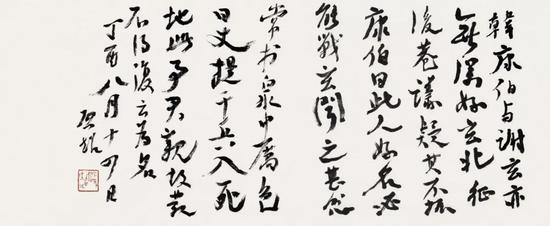 韓康伯与謝玄亦
無深好玄北征
後巷議疑其不振
康伯曰此人好名必
能戰玄聞之甚忿
常於衆中厲色
曰丈提千兵入死
地以事君親故發
不得復云為名
丁酉八月十四日